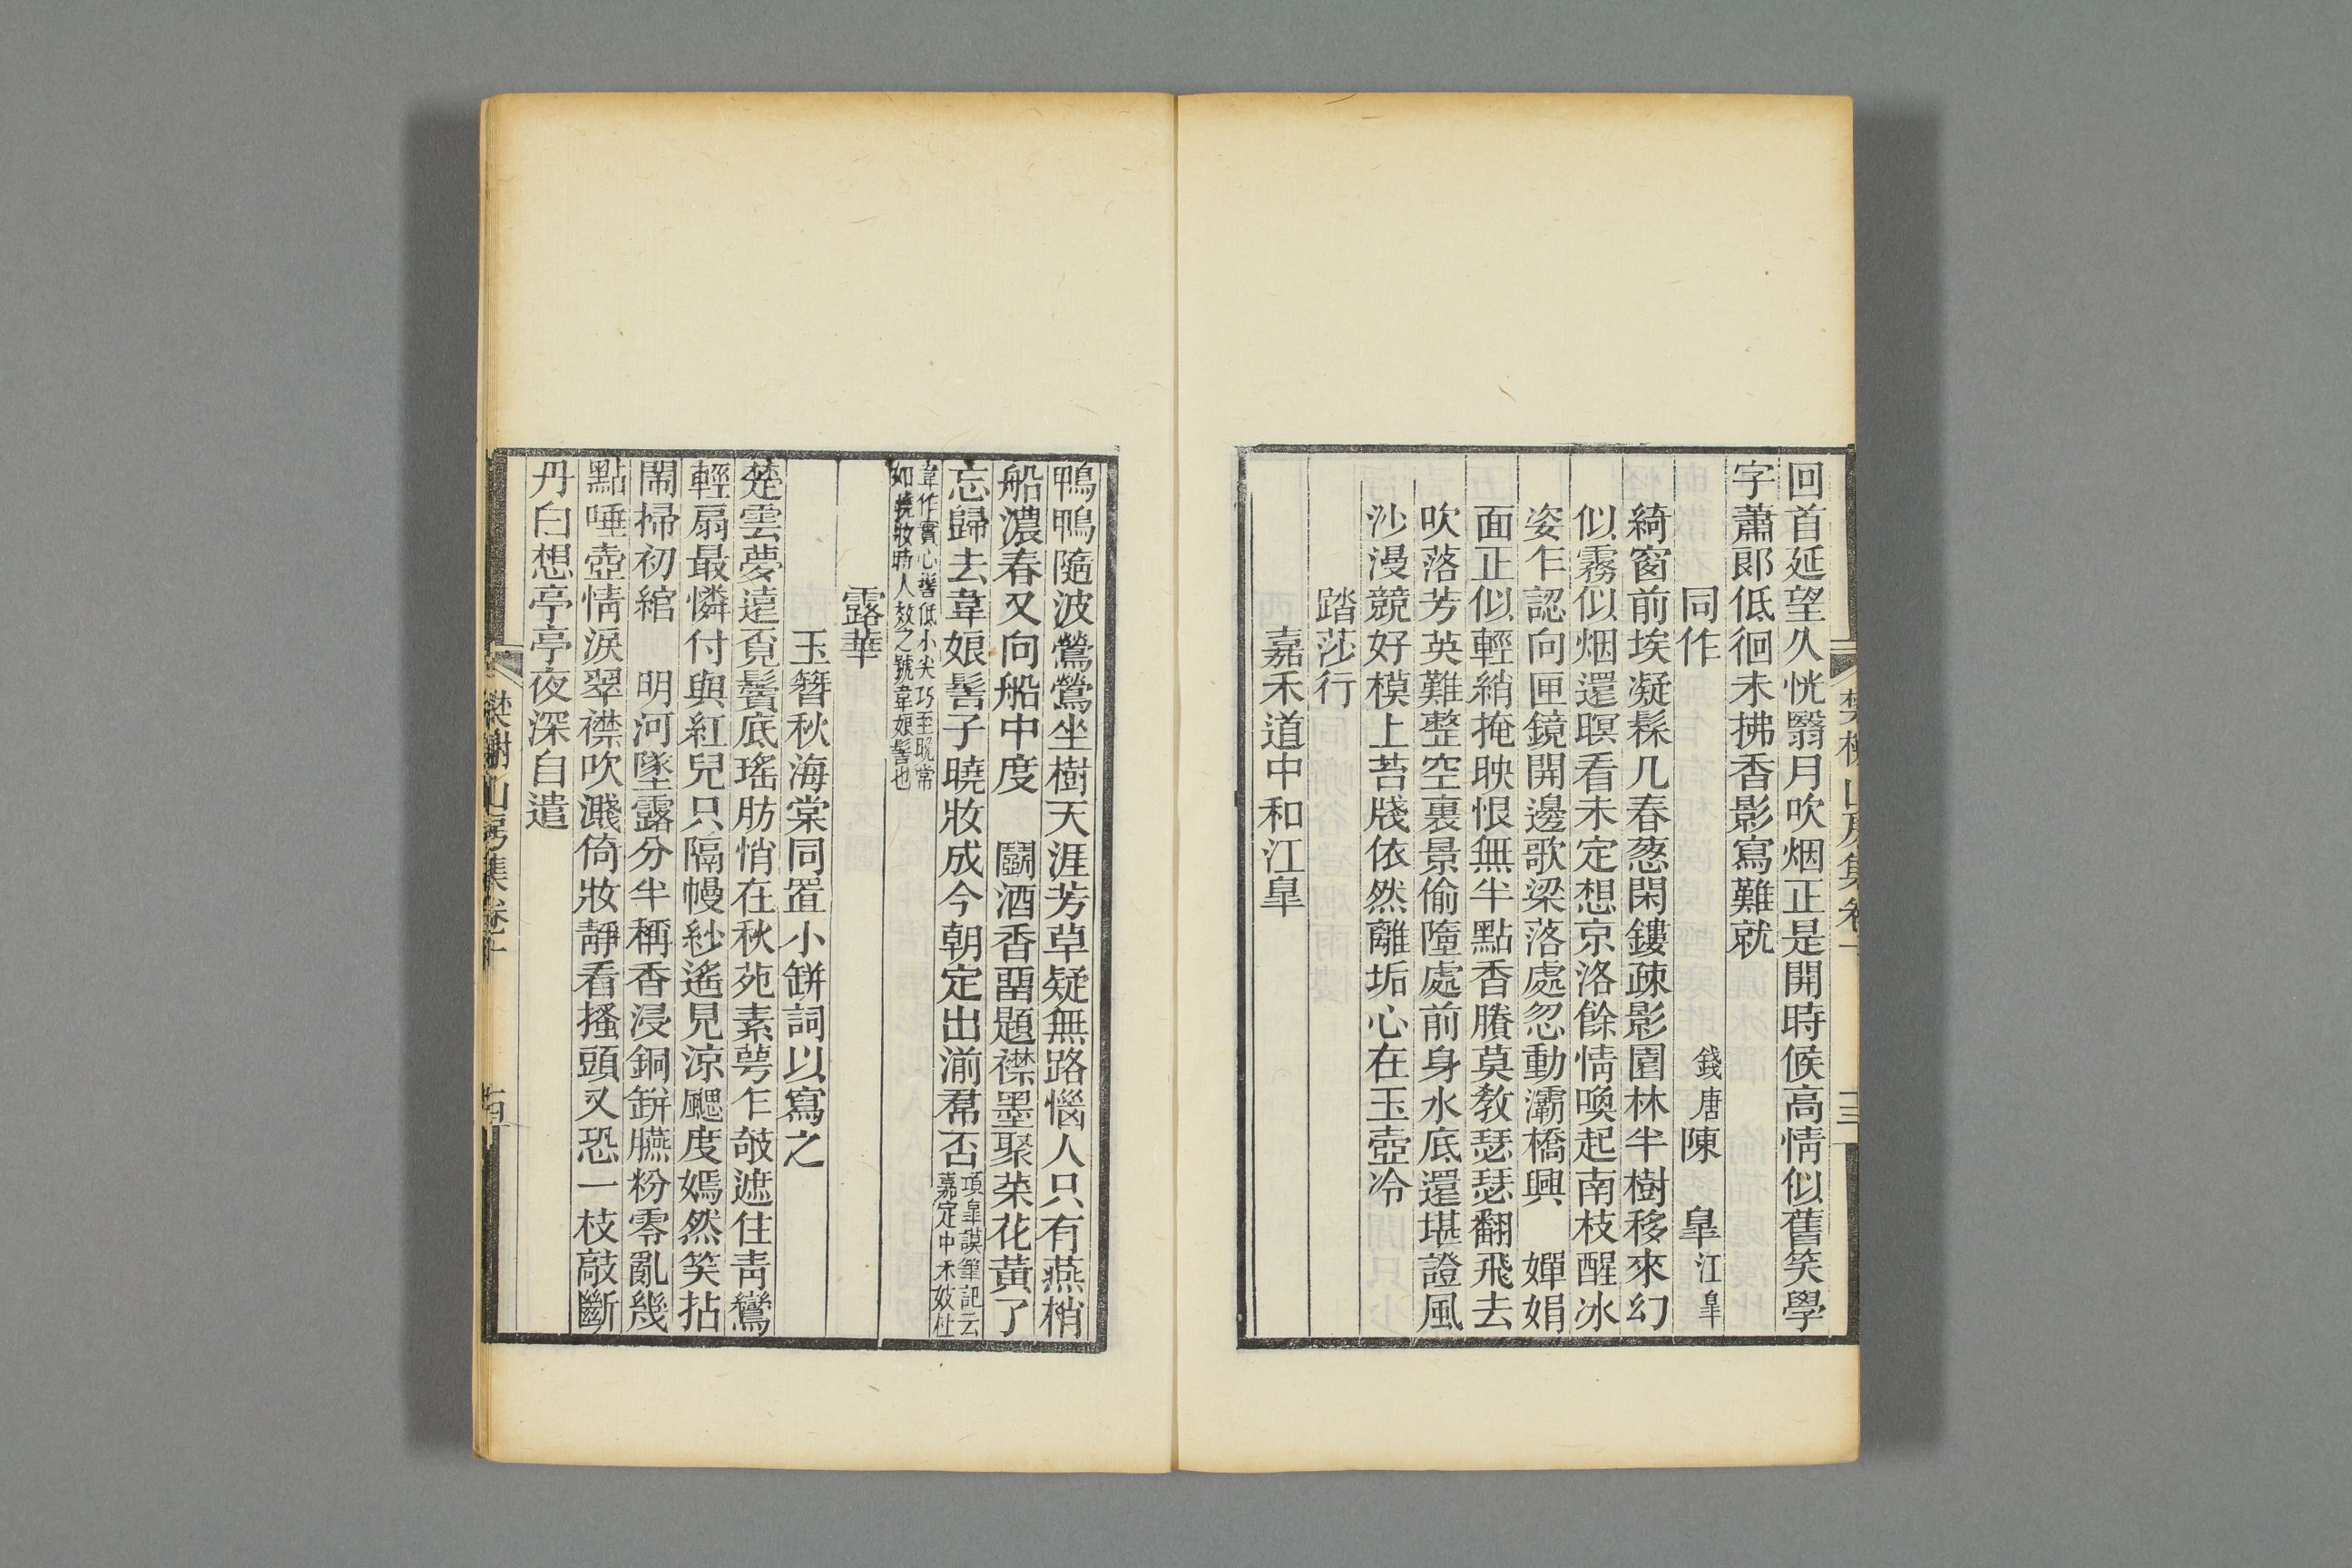 回首延望久恍翳月吹烟正是開時候高情似舊笑學
字蕭郎低徊未拂香影寫難就
同作　錢唐陳　皐江皐
綺窗前埃凝髹几春葱閑鏤疎影園林半樹移來幻
似霧似烟還暝看未定想京洛餘情喚起南枝醒冰
姿乍認向匣鏡開邊歌梁落處忽動灞橋興　嬋娟
面正似輕綃掩映恨無半點香賸莫敎瑟瑟翻飛去
吹落芳英難整空裏景偷墮處前身水底還堪證風
沙漫競好模上苔牋依然離垢心在玉壺冷
踏莎行
嘉禾道中和江皐
鴨鴨隨波鶯鶯坐樹天涯芳草疑無路惱人只有燕梢
船濃春又向船中度　鬭酒香罶題襟墨聚菜花黃了
忘歸去韋娘髻子曉妝成今朝定出湔帬否項皐謨筆記云
嘉定中禾妓杜
韋作實心髻低小尖巧至晩常
如曉妝時人效之號韋娘髻也
露華
玉簪秋海棠同置小缾詞以寫之
楚雲夢遠覔鬢底瑤肪悄在秋苑素萼乍敧遮住靑鸞
輕扇最憐付與紅兒只隔幔紗遙見涼颸度嫣然笑拈
鬧掃初綰　明河墜露分半稱香浸銅缾臙粉零亂幾
點唾壺情淚翠襟吹濺倚妝靜看搔頭又恐一枝敲斷
丹白想亭亭夜深自遣
樊榭山房集卷十